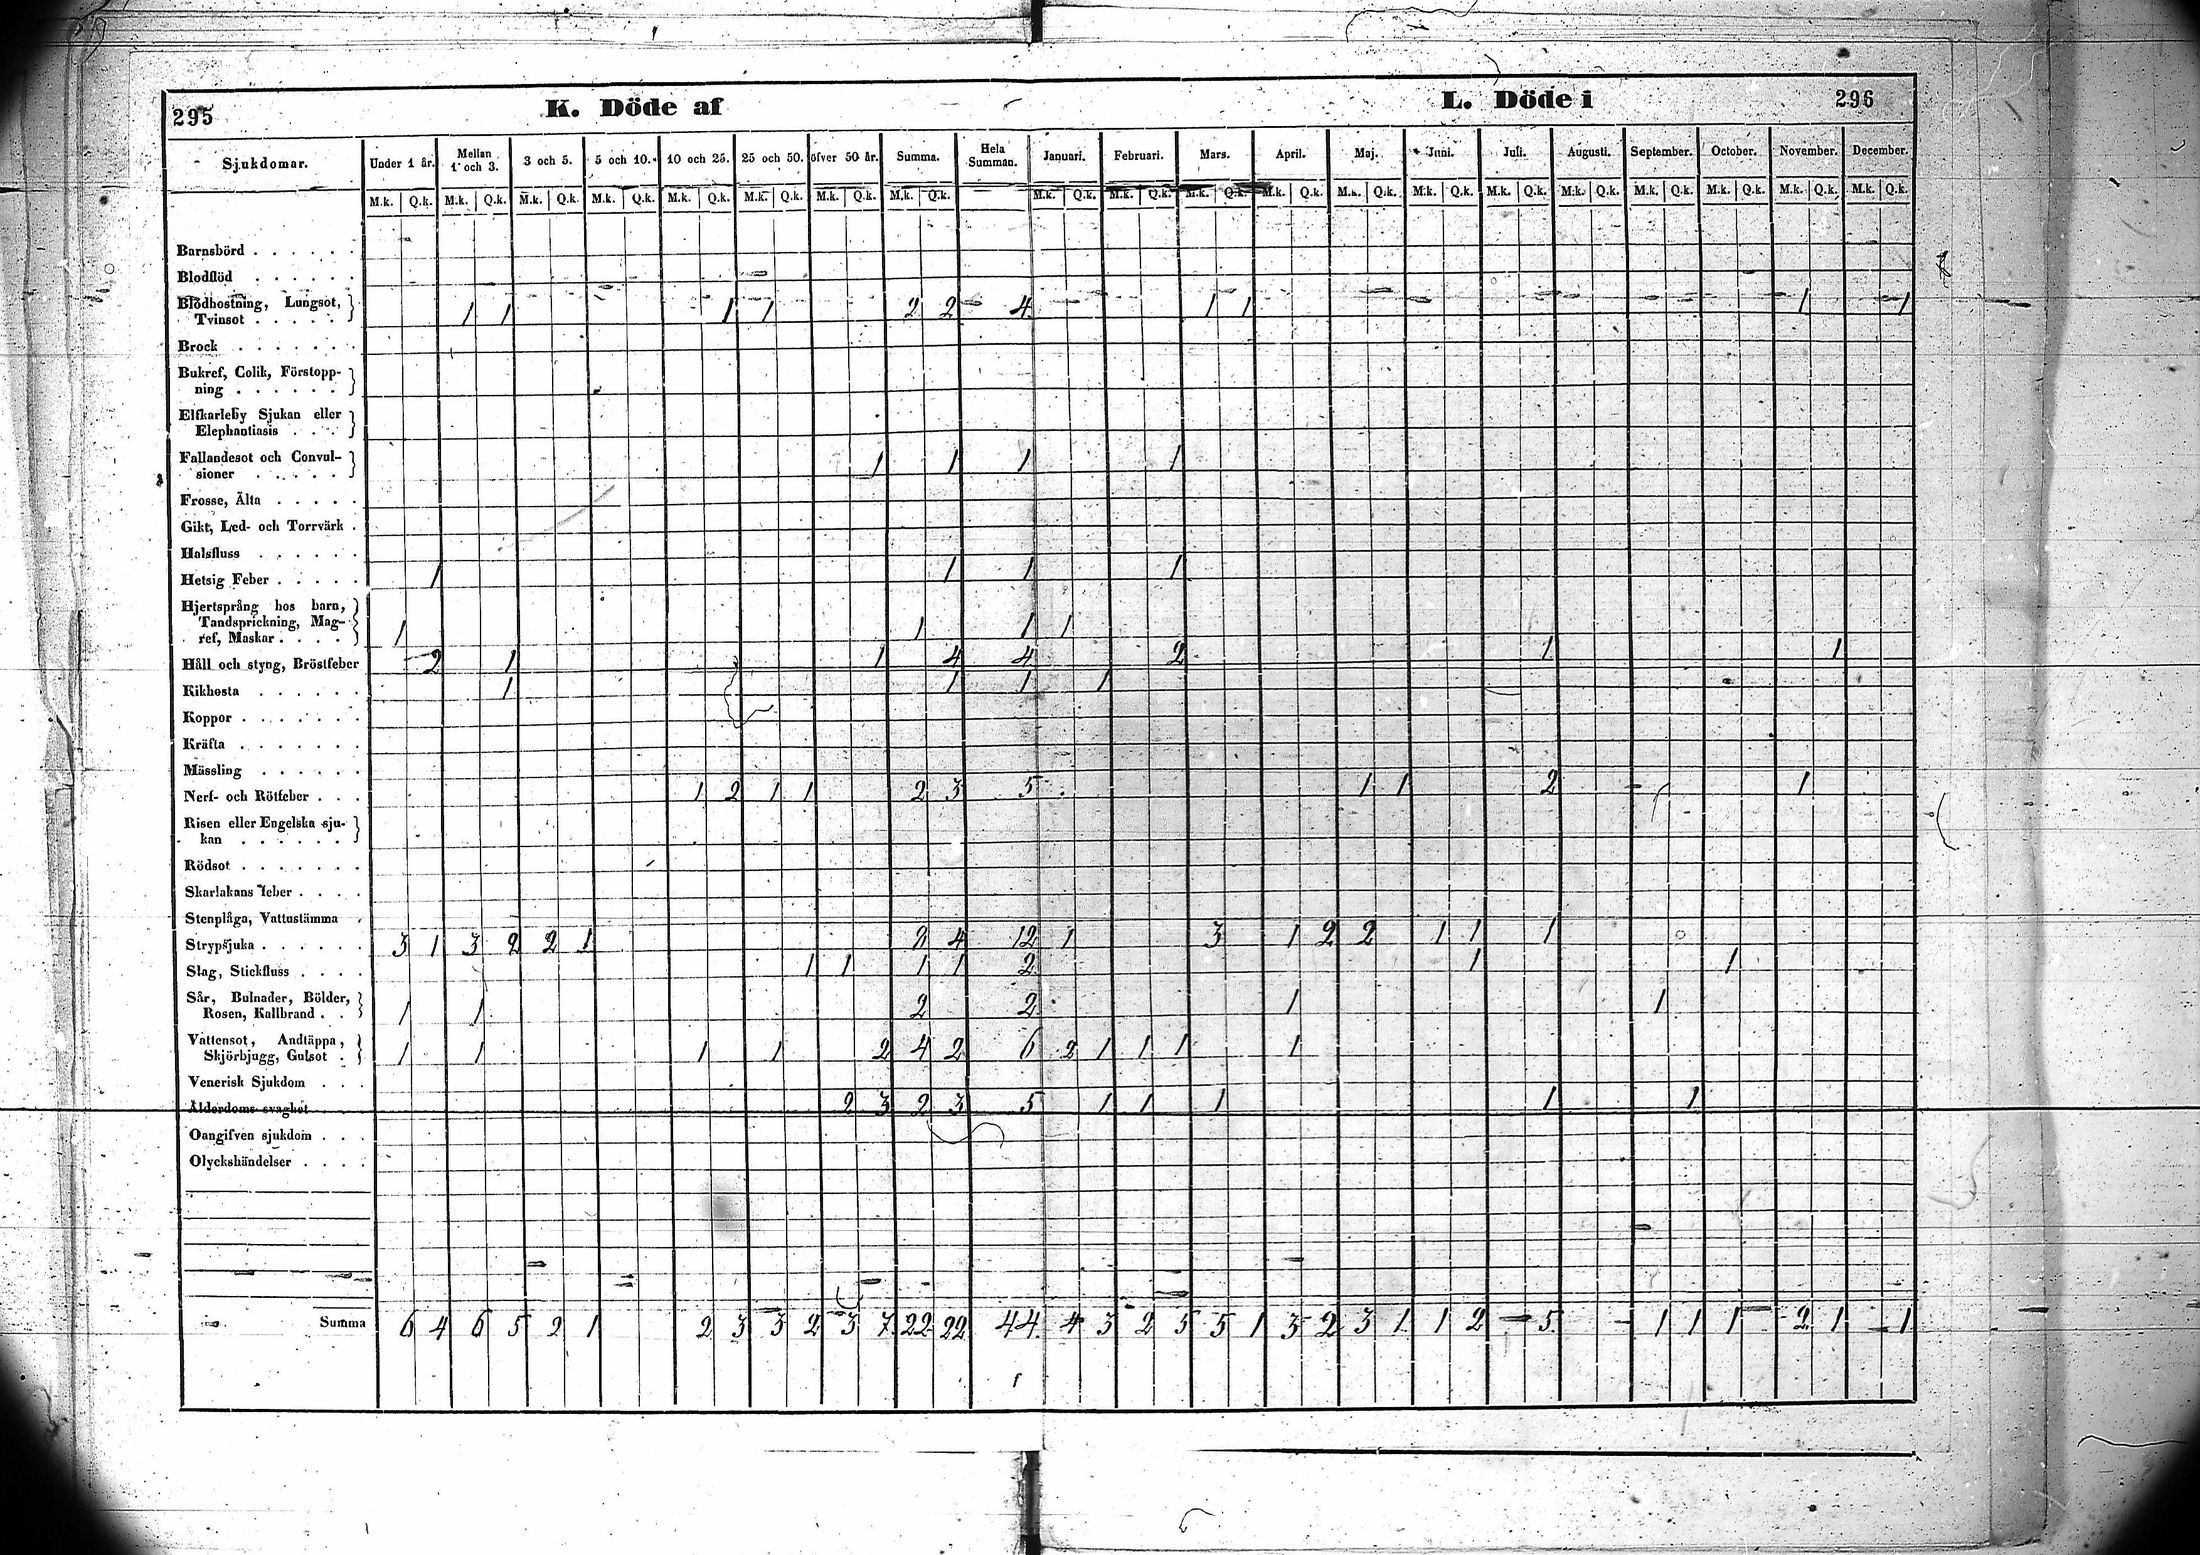 295 K. Döde af L. Döde i 296
Sjukdomar. Under 1 år. Mellan 1 och 3. 3 och 5. 5 och 10. 10 och 25. 25 och 50. öfver 50 år. Summa. Hela Summan. Januari. Februari. Mars. April. Maj. Juni. Juli. Augusti. September. October. November. December.
M.k. Q.k. M.k. Q.k. M.k. Q.k. M.k. Q.k. M.k. Q.k. M.k. Q.k. M.k. Q.k. M.k. Q.k. M.k. Q.k. M.k. Q.k. M.k. Q.k. M.k. Q.k. M.k. Q.k. M.k. Q.k. M.k. Q.k. M.k. Q.k. M.k. Q.k. M.k. Q.k. M.k. Q.k. M.k. Q.k.
Barnsbörd . . . . . .
Blodflöd . . . . . .
Blodhostning, Lungsot,
Tvinsot . . . . . 1 1 1 1 2 2 4 1 1 1 1
Brock . . . . . . .
Bukref, Colik, Förstopp-
ning . . . . . .
Elfkarleby Sjukan eller
Elephantiasis . . .
Fallandesot och Convul-
sioner . . . . . 1 1 1 1
Frosse, Älta . . . . .
Gikt, Led- och Torrvärk .
Halsfluss . . . . . .
Hetsig Feber . . . . . 1 1 1 1
Hjertsprång hos barn,
Tandsprickning, Mag-
ref, Maskar . . . . 1 1 1 1
Håll och styng, Bröstfeber 2 1 1 4 4 2 1 1
Kikhosta . . . . . . 1 1 1 1
Koppor . . . . . . .
Kräfta . . . . . . .
Mässling . . . . . .
Nerf- och Rötfeber . . . 1 2 1 1 2 3 5 1 1 2 1
Risen eller Engelska sju-
kan . . . . . .
Rödsot . . . . . . .
Skarlakans feber . . . .
Stenplåga, Vattustämma .
Strypsjuka . . . . . . 3 1 3 2 2 1 8 4 12 1 3 1 2 2 1 1 1
Slag, Stickfluss . . . . 1 1 1 1 2 1 1
Sår, Bulnader, Bölder,
Rosen, Kallbrand . . 1 1 2 2 1 1
Vattensot, Andtäppa,
Skjörbjugg, Gulsot . 1 1 1 1 2 4 2 6 2 1 1 1 1
Venerisk Sjukdom . . .
Ålderdoms svaghet 2 3 2 3 5 1 1 1 1 1
Oangifven sjukdom . . .
Olyckshändelser . . . .
Summa 6 4 6 5 2 1 2 3 3 2 3 7 22 22 44 4 3 2 5 5 1 3 2 3 1 1 2 - 5 - 1 1 1 - 2 1 - 1